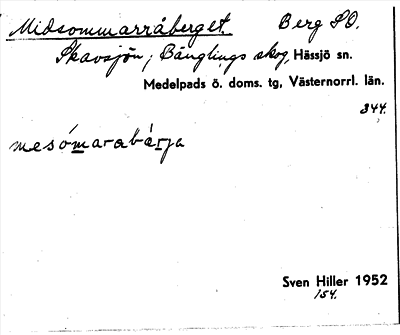 Midsommarråberget. Berg SO.
Skavsjön; Bänglings skog, Hässjö sn.
Medelpads ö. doms. tg, Västernorrl. län.
344.
mesómarabárja
Sven Hiller 1952
154.